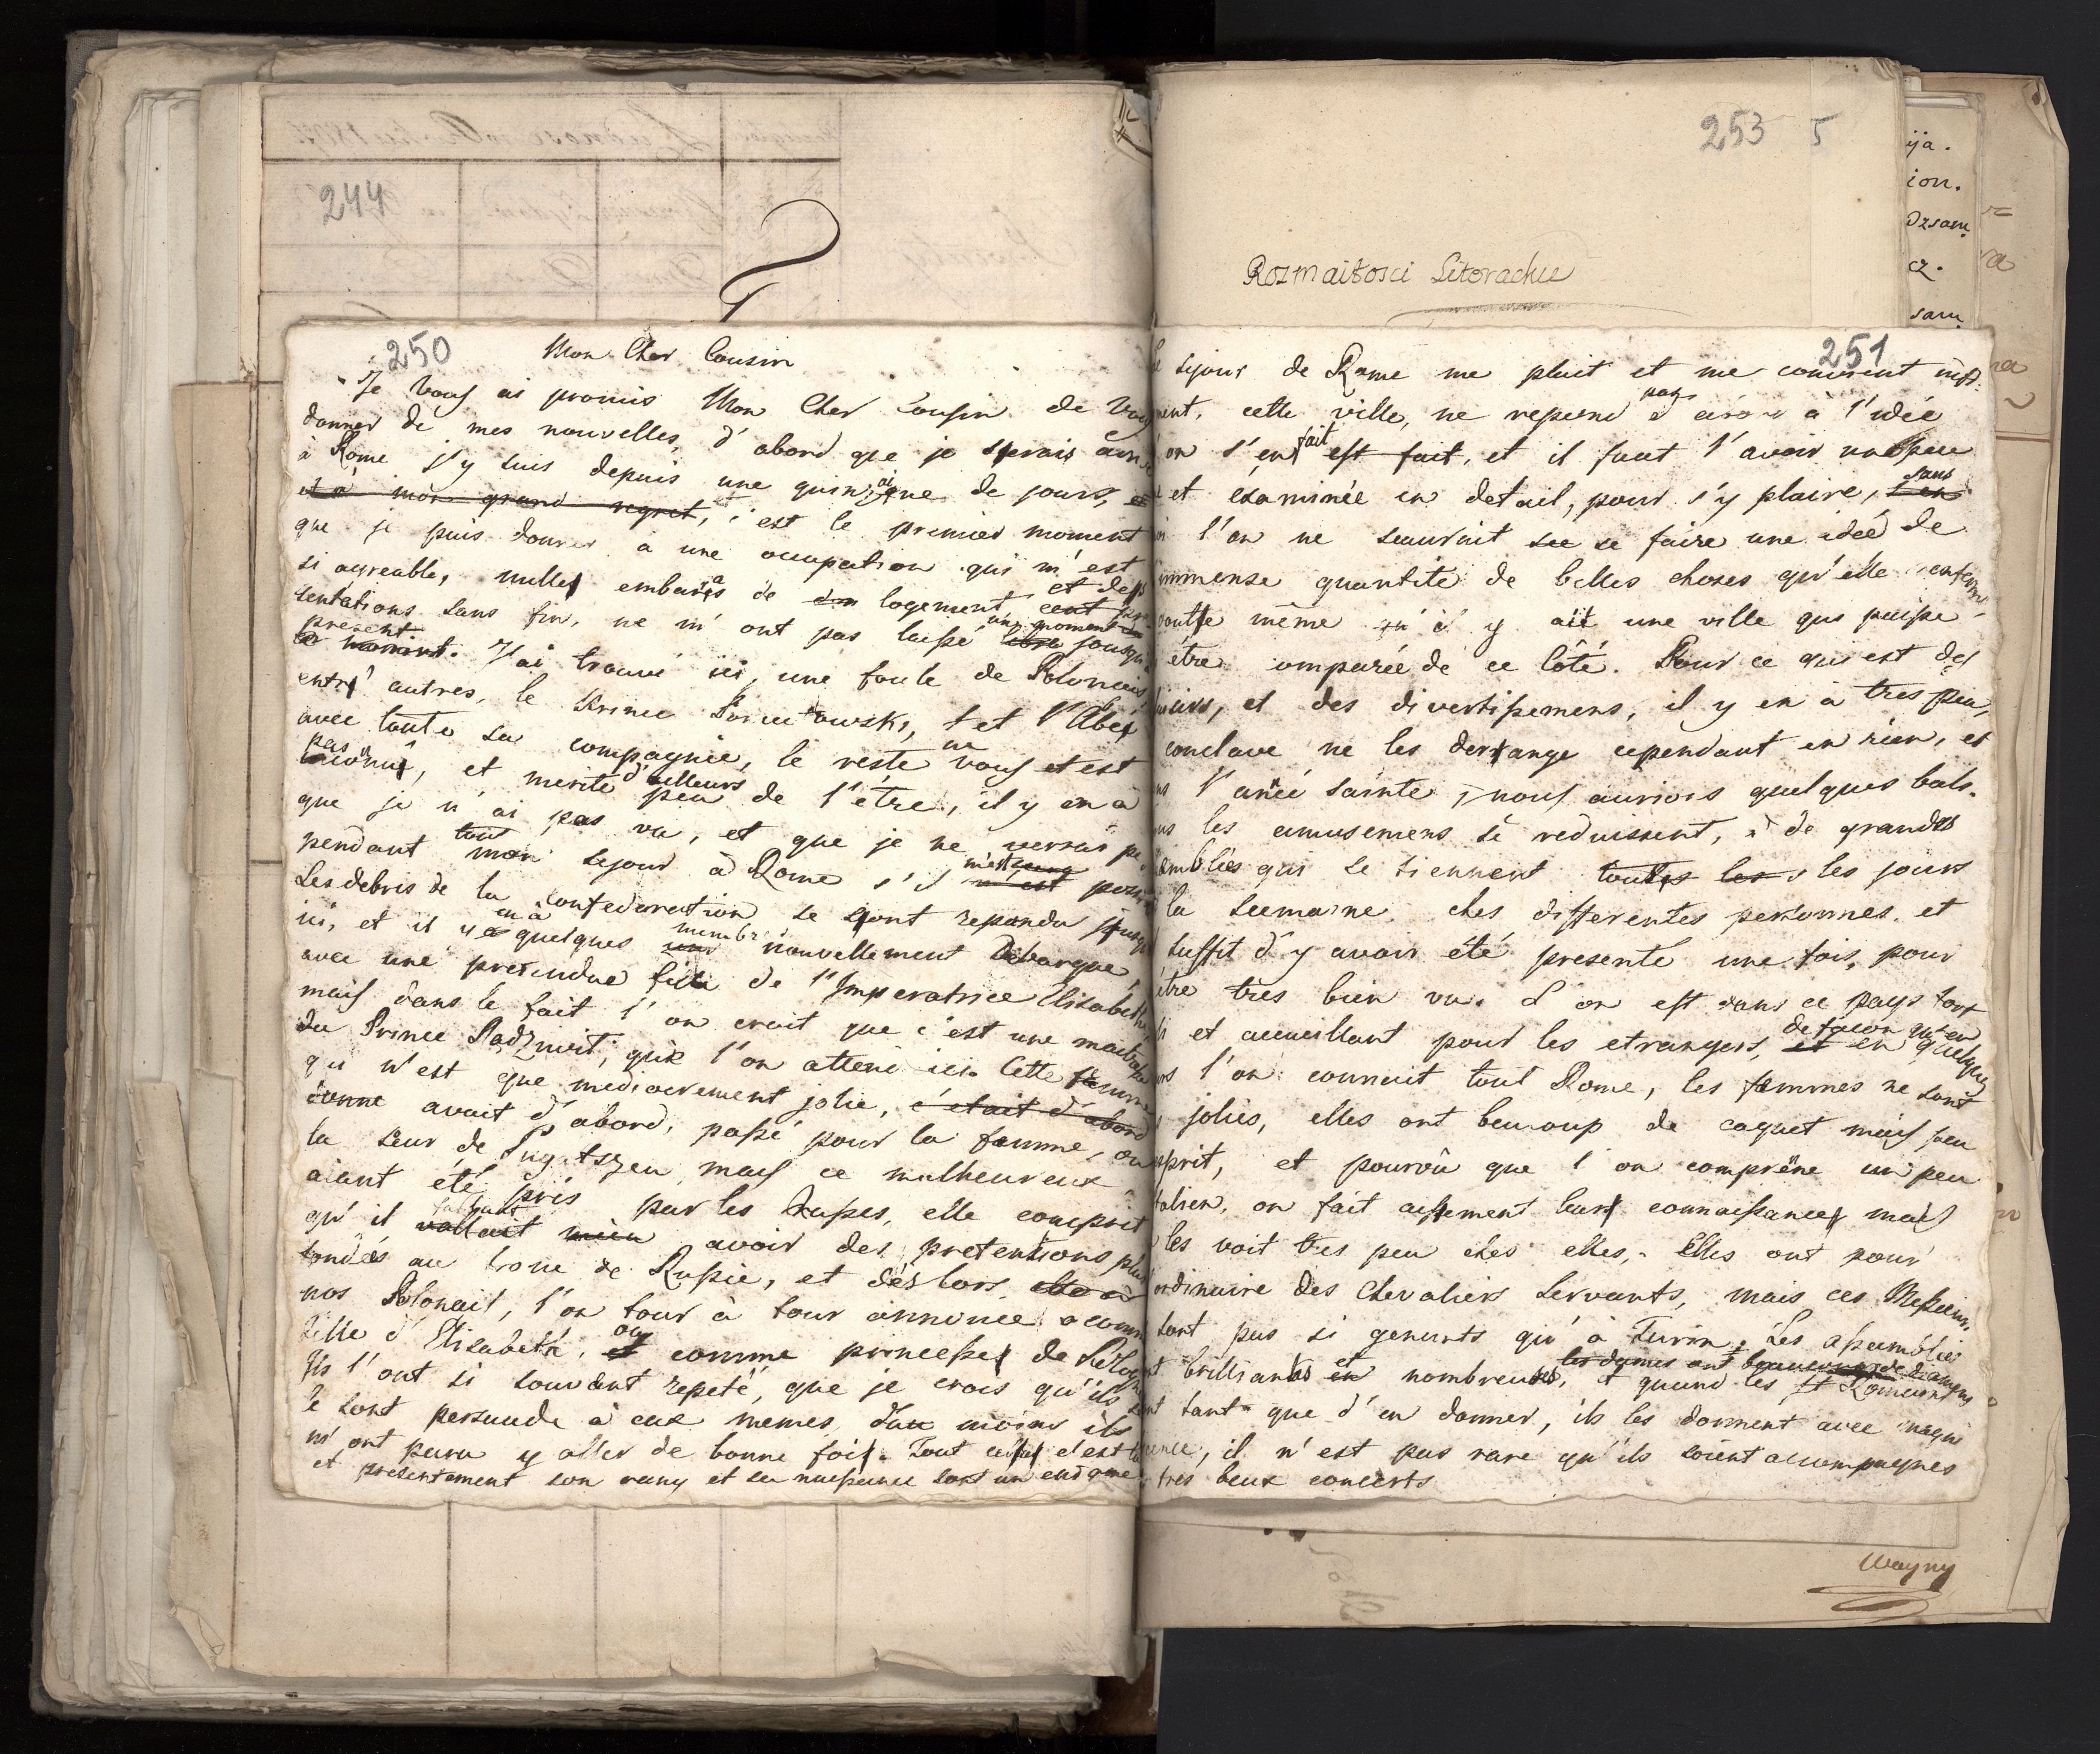 244
250
Mon Cher Cousin
Je vous ai promis Mon Cher Cousin de vou
donner de mes nouvelles, d'abord que je serais
à Rome j'y suis depuis une quinzaine de jours,
et à mon grand regret, c'est le premier moment
que je puis donner à une occupation qui m'est
si agreable, mille embaras de logement, et des
sentations sans fin, ne m'ont pas laissé un moment jusqu
present
ce moment. J'ai trouvé ici, une foule de Polonais
entre autres, le Prince et l'Abbé
avec toute sa compagnie, le reste ne vous est
pas connu, et merite d'ailleurs peu de l'être, il y en à
que je n'ai pas vu, et que je ne verrai
pendant tout mon sejour à Rome s'il m'est
Les debris de la confederation se sont repandu jusqu
ici, et il y en à quelques membres nouvellement debarqué
avec une pretendue fille de l'Imperatrice Elisabeth
mais dans le fait l'on croit que c'est une
du Prince Radzivil, que l'on attend ici. Cette femme
qui n'est que mediocrement jolie, c'était d'abord
donne avait d'abord, passé pour la femme, ou
la seur de Pugatszew mais ce malheureux
aiant été pris par les Russes, elle comprit
qu'il vallait mieu avoir des pretentions plu
fondés au trone de Russie, et dès lors elle à
nos Polonais, l'on tour à tour annoncé comm
fille d'Elisabeth, ou et comme princesse de
Ils l'ont si souvent repeté, que je crois qu'ils
se sont persuadé à eux memes, du moins ils
m'ont paru y aller de bonne foi. Tout
et presentement son rang et sa naissance sont un
253 5
Rozmaitosci Literackie
251
sejour de Rome me plait et me convient
ment, cette ville, ne repend pas à l'idée
on s'en fait est fait, et il faut l'avoir un peu
et examinée en detail, pour s'y plaire, sans
l'on ne scauroit se faire une idée de
immense quantité de belles choses qu'elle
doute même qu'il y ait une ville qui puisse
être comparée de ce côté. Pour ce qui est des
et des divertissemens, il y en à tres peu,
conclave ne les derange cependant en rien, et
l'année sainte, nous aurions quelques bals.
les amusemens se reduissent, à de grandes
emblées qui se tiennent toutes les les jours
la seemaine ches differentes personnes et
suffit d'y avoir été presenté une fois, pour
être tres bien vu. L'on est dans ce pays fort
et accueillant pour les etrangers, de façon qu'en et en quelques
l'on connait tout Rome, les femmes ne sont
jolies, elles ont beaucoup de caquet mais peu
sprit, et pourvû que l'on comprêne un peu
talien, on fait aisement leurs connaissances mais
les voit tres peu ches elles. Elles ont pour
ordinaire des Chevaliers servants, mais ces Messieurs
sont pas si genants qu'à Turin. Les assemblées
brillantes et en nombreuses, les dames ont beaucoup de diamans et quand les Romains
tant que d'en donner, ils les donnent avec magni
cence, il n'est pas rare qu'ils soient accompagnés
tres beux concerts
ija.
ion.
cz.
sam